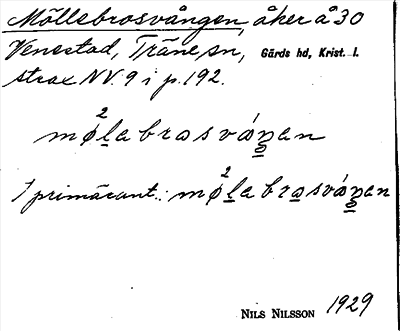 Möllebrosvången, åker å 30
Venestad, Träne sn, Gärds hd, Krist. l.
strax NV. 9 i p. 192.
2
mølabrasvåŋan
I primäruant.: 2
mølabrasvåŋan
NILS NILSSON 1929